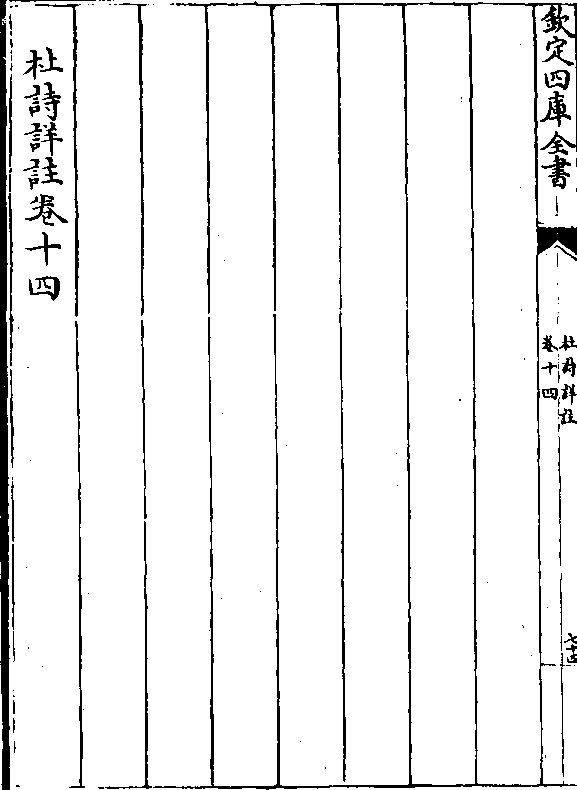 欽定四庫全書
杜詩詳註
卷十四
七十四
杜詩詳註卷十四